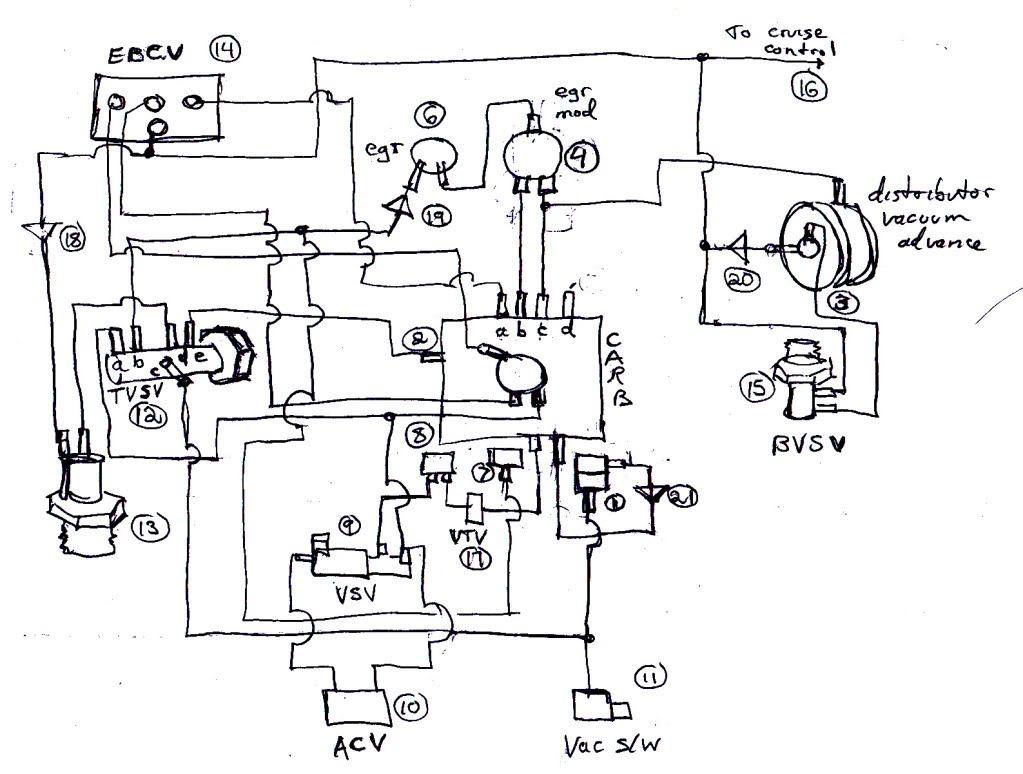 To cruise
control
16
EBCV 14
egr
mod
6
egr
4
19
18
distributor
vacuum
advance
20
3
a b c d
2
CARB
a b c d e
TVSV
12
15
BVSV
8
7
1
21
13
9
VTV
17
VSV
11
10
ACV
Vac s/w